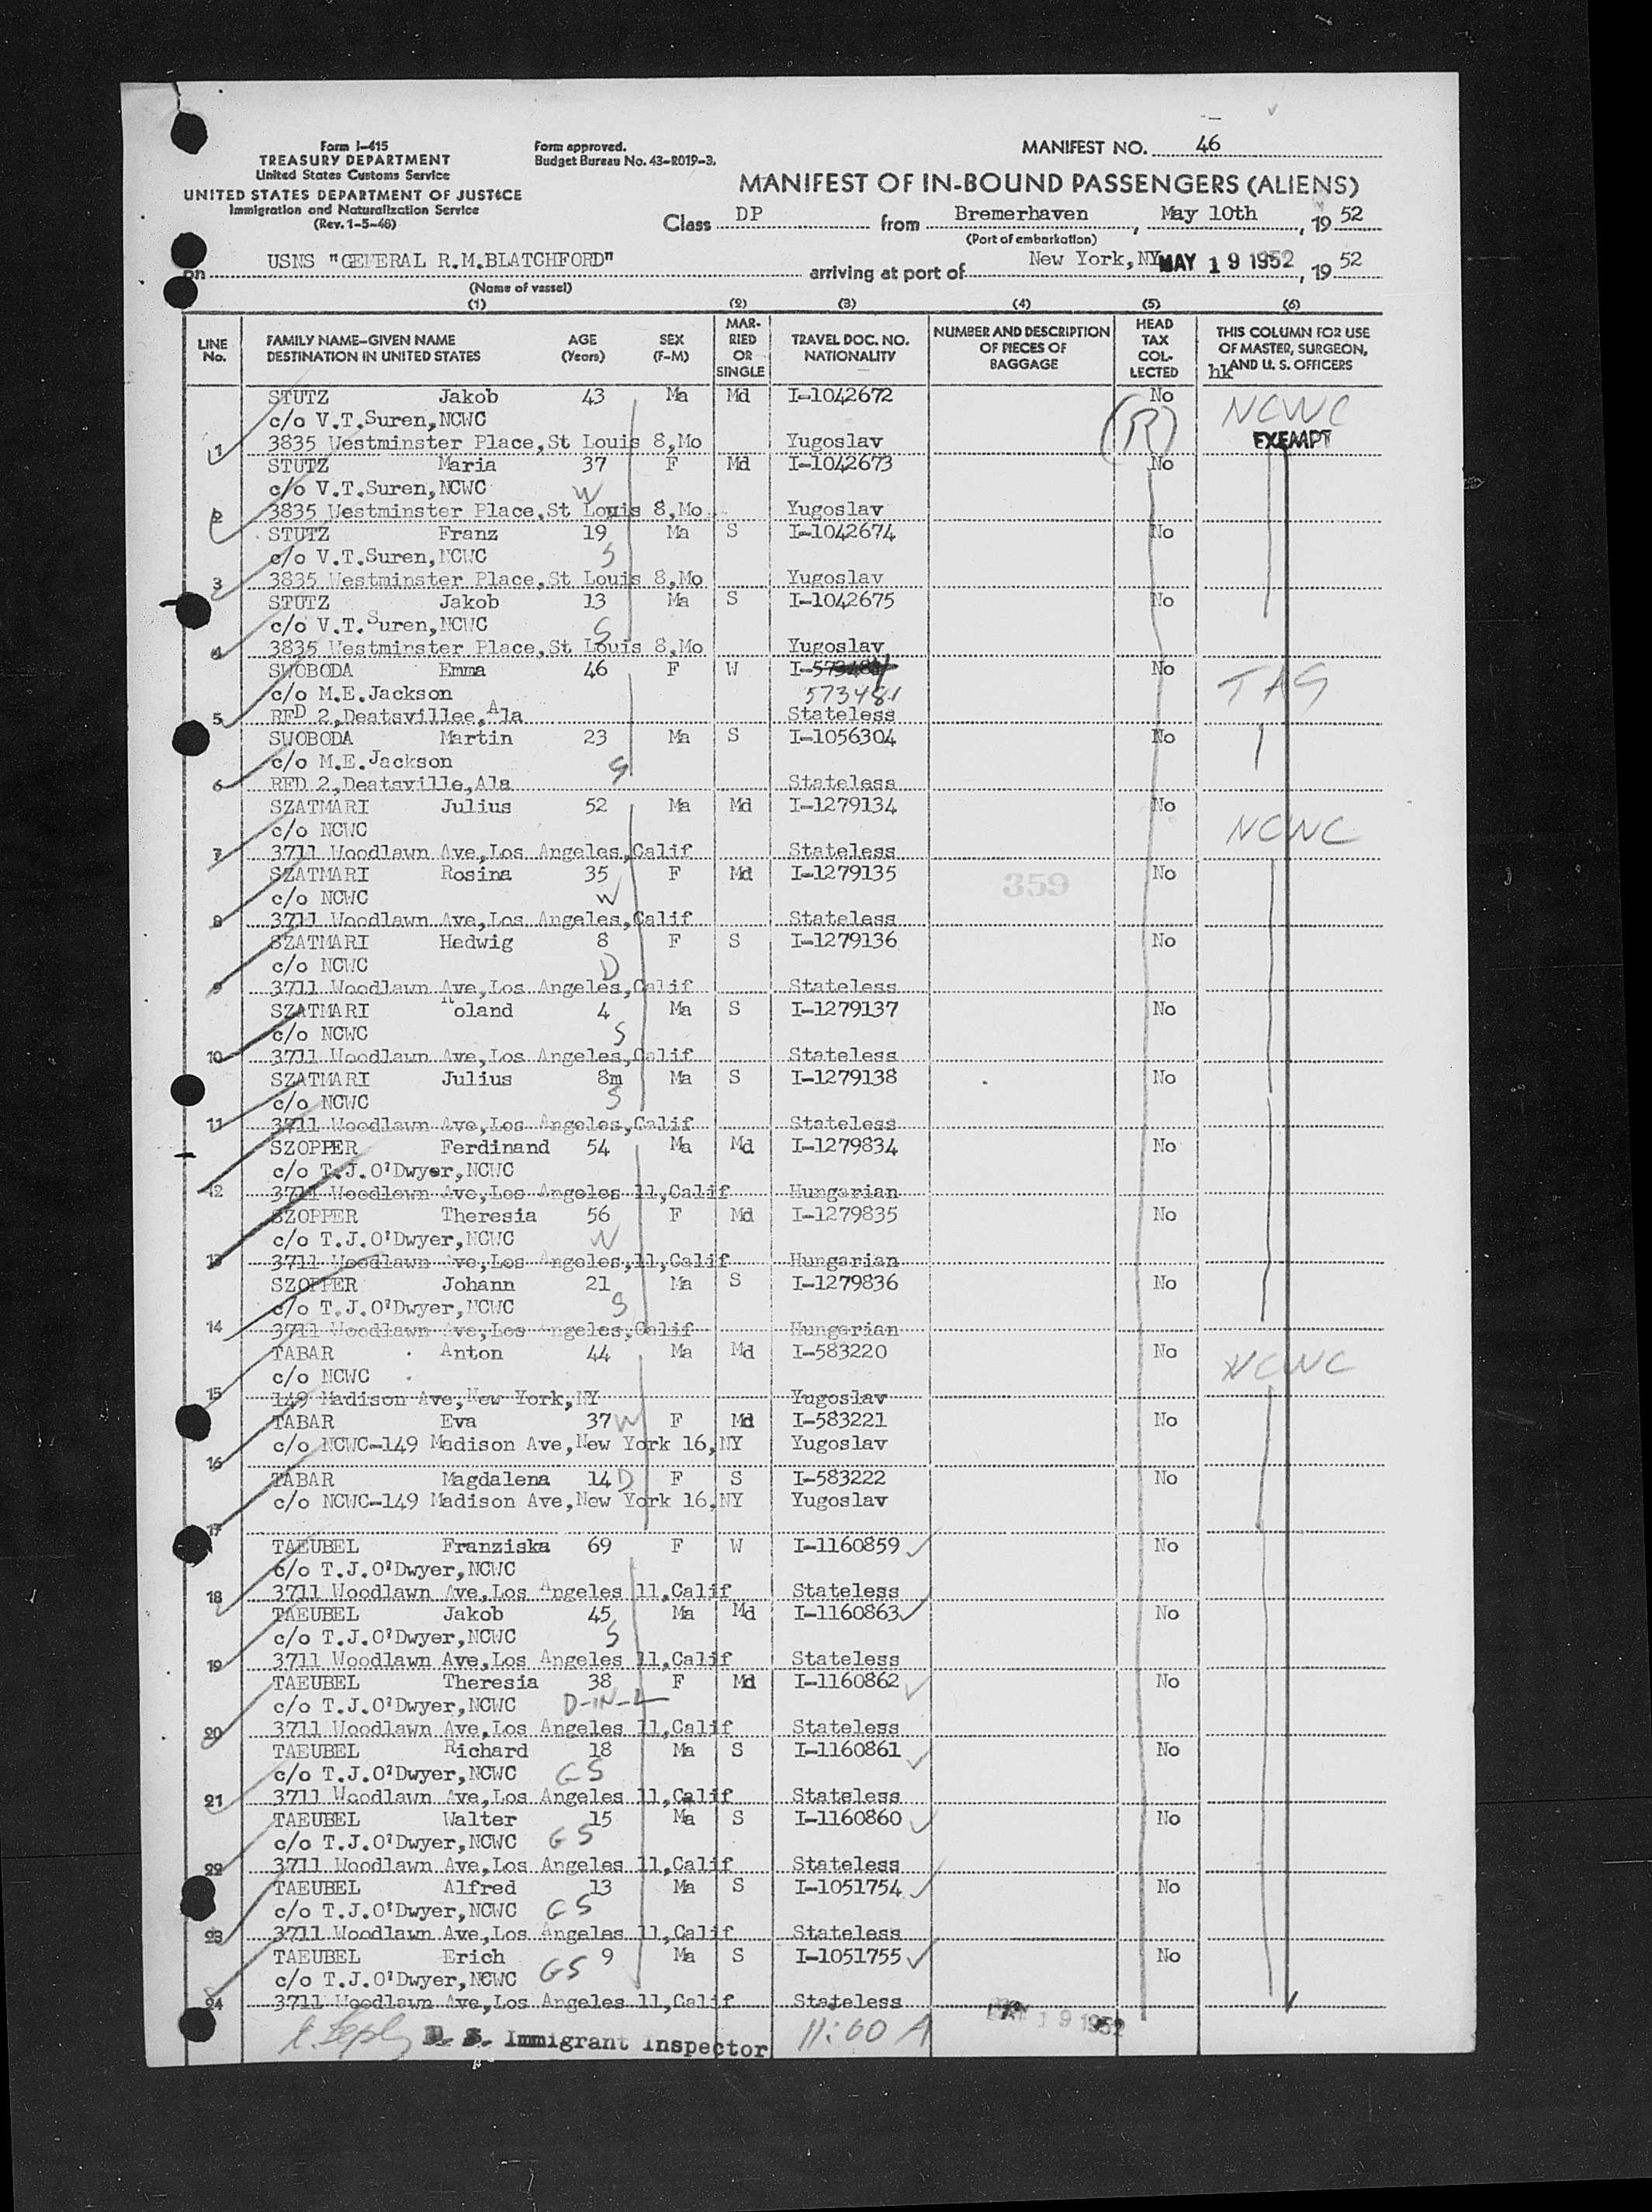 Form I-415
TREASURY DEPARTMENT
United States Customs Service
UNITED STATES DEPARTMENT OF JUSTICE
Immigration and Naturalization Service
(Rev. 1-5-46)
Form approved.
Budget Bureau No. 43-R019-3.
MANIFEST NO. 46
MANIFEST OF IN-BOUND PASSENGERS (ALIENS)
Class DP from Bremerhaven, May 10th, 19 52
(Port of embarkation)
on USNS "GENERAL R.M.BLATCHFORD" arriving at port of New York, NY MAY 19 1952, 19 52
(Name of vessel)
(1) (2) (3) (4) (5) (6)
LINE No. FAMILY NAME-GIVEN NAME DESTINATION IN UNITED STATES AGE (Years) SEX (F-M) MARRIED OR SINGLE TRAVEL DOC. NO. NATIONALITY NUMBER AND DESCRIPTION OF PIECES OF BAGGAGE HEAD TAX COLLECTED THIS COLUMN FOR USE OF MASTER, SURGEON, AND U. S. OFFICERS hk
STUTZ Jakob 43 Ma Md I-1042672 No NCWC
c/o V.T.Suren,NCWC (R) EXEMPT
1 3835 Westminster Place,St Louis 8,Mo Yugoslav
STUTZ Maria 37 F Md I-1042673 No
c/o V.T.Suren,NCWC W
2 3835 Westminster Place,St Louis 8,Mo Yugoslav
STUTZ Franz 19 Ma S I-1042674 No
c/o V.T.Suren,NCWC S
3 3835 Westminster Place,St Louis 8,Mo Yugoslav
STUTZ Jakob 13 Ma S I-1042675 No
c/o V.T.Suren,NCWC S
4 3835 Westminster Place,St Louis 8,Mo Yugoslav
SWOBODA Emma 46 F W I- No TAS
c/o M.E.Jackson 573481
5 RFD 2,Deatsvillee,Ala Stateless
SWOBODA Martin 23 Ma S I-1056304 No
c/o M.E.Jackson S
6 RFD 2,Deatsville,Ala Stateless
SZATMARI Julius 52 Ma Md I-1279134 No
c/o NCWC NCWC
7 3711 Woodlawn Ave,Los Angeles,Calif Stateless
SZATMARI Rosina 35 F Md I-1279135 359 No
c/o NCWC W
8 3711 Woodlawn Ave,Los Angeles,Calif Stateless
SZATMARI Hedwig 8 F S I-1279136 No
c/o NCWC D
9 3711 Woodlawn Ave,Los Angeles,Calif Stateless
SZATMARI Roland 4 Ma S I-1279137 No
c/o NCWC S
10 3711 Woodlawn Ave,Los Angeles,Calif Stateless
SZATMARI Julius 8m Ma S I-1279138 No
c/o NCWC S
11 3711 Woodlawn Ave,Los Angeles,Calif Stateless
SZOPPER Ferdinand 54 Ma Md I-1279834 No
c/o T.J.O'Dwyer,NCWC
12 3711 Woodlawn Ave,Los Angeles 11,Calif Hungarian
SZOPPER Theresia 56 F Md I-1279835 No
c/o T.J.O'Dwyer,NCWC W
13 3711 Woodlawn Ave,Los Angeles,11,Calif Hungarian
SZOPPER Johann 21 Ma S I-1279836 No
c/o T.J.O'Dwyer,NCWC S
14 3711 Woodlawn Ave,Los Angeles,Calif Hungarian
TABAR Anton 44 Ma Md I-583220 No NCWC
c/o NCWC
15 149 Madison Ave,New York,NY Yugoslav
TABAR Eva 37 W F Md I-583221 No
c/o NCWC-149 Madison Ave,New York 16,NY Yugoslav
16
TABAR Magdalena 14 D F S I-583222 No
c/o NCWC-149 Madison Ave,New York 16,NY Yugoslav
17
TAEUBEL Franziska 69 F W I-1160859 No
c/o T.J.O'Dwyer,NCWC
18 3711 Woodlawn Ave,Los Angeles 11,Calif Stateless
TAEUBEL Jakob 45 Ma Md I-1160863 No
c/o T.J.O'Dwyer,NCWC S
19 3711 Woodlawn Ave,Los Angeles 11,Calif Stateless
TAEUBEL Theresia 38 F Md I-1160862 No
c/o T.J.O'Dwyer,NCWC D-IN-L
20 3711 Woodlawn Ave,Los Angeles 11,Calif Stateless
TAEUBEL Richard 18 Ma S I-1160861 No
c/o T.J.O'Dwyer,NCWC GS
21 3711 Woodlawn Ave,Los Angeles 11,Calif Stateless
TAEUBEL Walter 15 Ma S I-1160860 No
c/o T.J.O'Dwyer,NCWC GS
22 3711 Woodlawn Ave,Los Angeles 11,Calif Stateless
TAEUBEL Alfred 13 Ma S I-1051754 No
c/o T.J.O'Dwyer,NCWC GS
23 3711 Woodlawn Ave,Los Angeles 11,Calif Stateless
TAEUBEL Erich 9 Ma S I-1051755 No
c/o T.J.O'Dwyer,NCWC GS
24 3711 Woodlawn Ave,Los Angeles 11,Calif Stateless
U. S. Immigrant Inspector 11:00 A MAY 19 1952